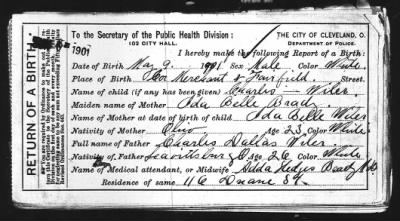 To the Secretary of the Public Health Division :
102 CITY HALL.
THE CITY OF CLEVELAND, O.
DEPARTMENT OF POLICE.
1901
I hereby make the following Report of a Birth :
RETURN OF A BIRTH
Date of Birth Mar 9. 1901 Sex Male Color White
Place of Birth Cor Merchant & Fairfield Street.
Name of child (if any has been given) Charles — Wiler
Maiden name of Mother Oda Belle Brady
Name of Mother at date of birth of child Oda Belle Wiler
Nativity of Mother Ohio Age 23 Color White
Full name of Father Charles Dallas Wiler
Nativity of Father Leavittsburg O Age 26 Color White
Name of Medical attendant, or Midwife Hilda Hedges Beady M D
Residence of same 116 Duane St.